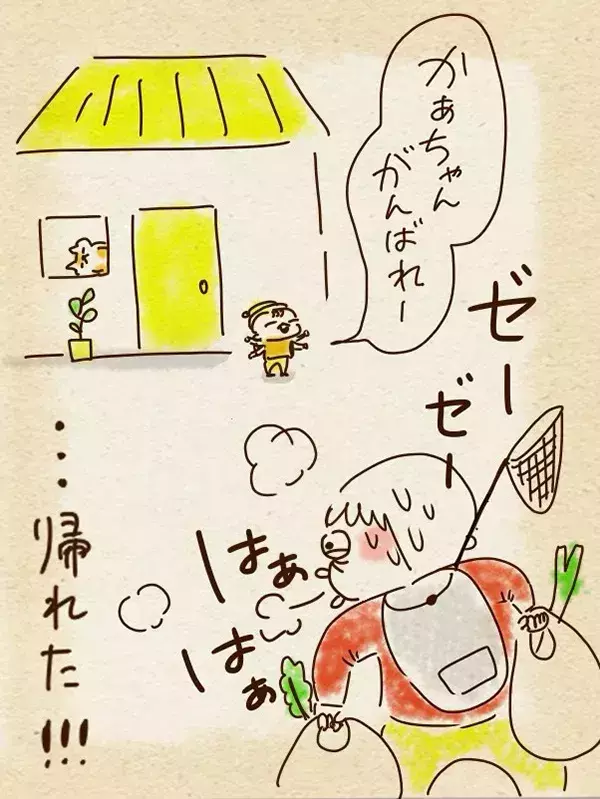 かぁちゃん
がんばれー
ゼー
ゼー
はぁ
はぁ
…帰れた!!!